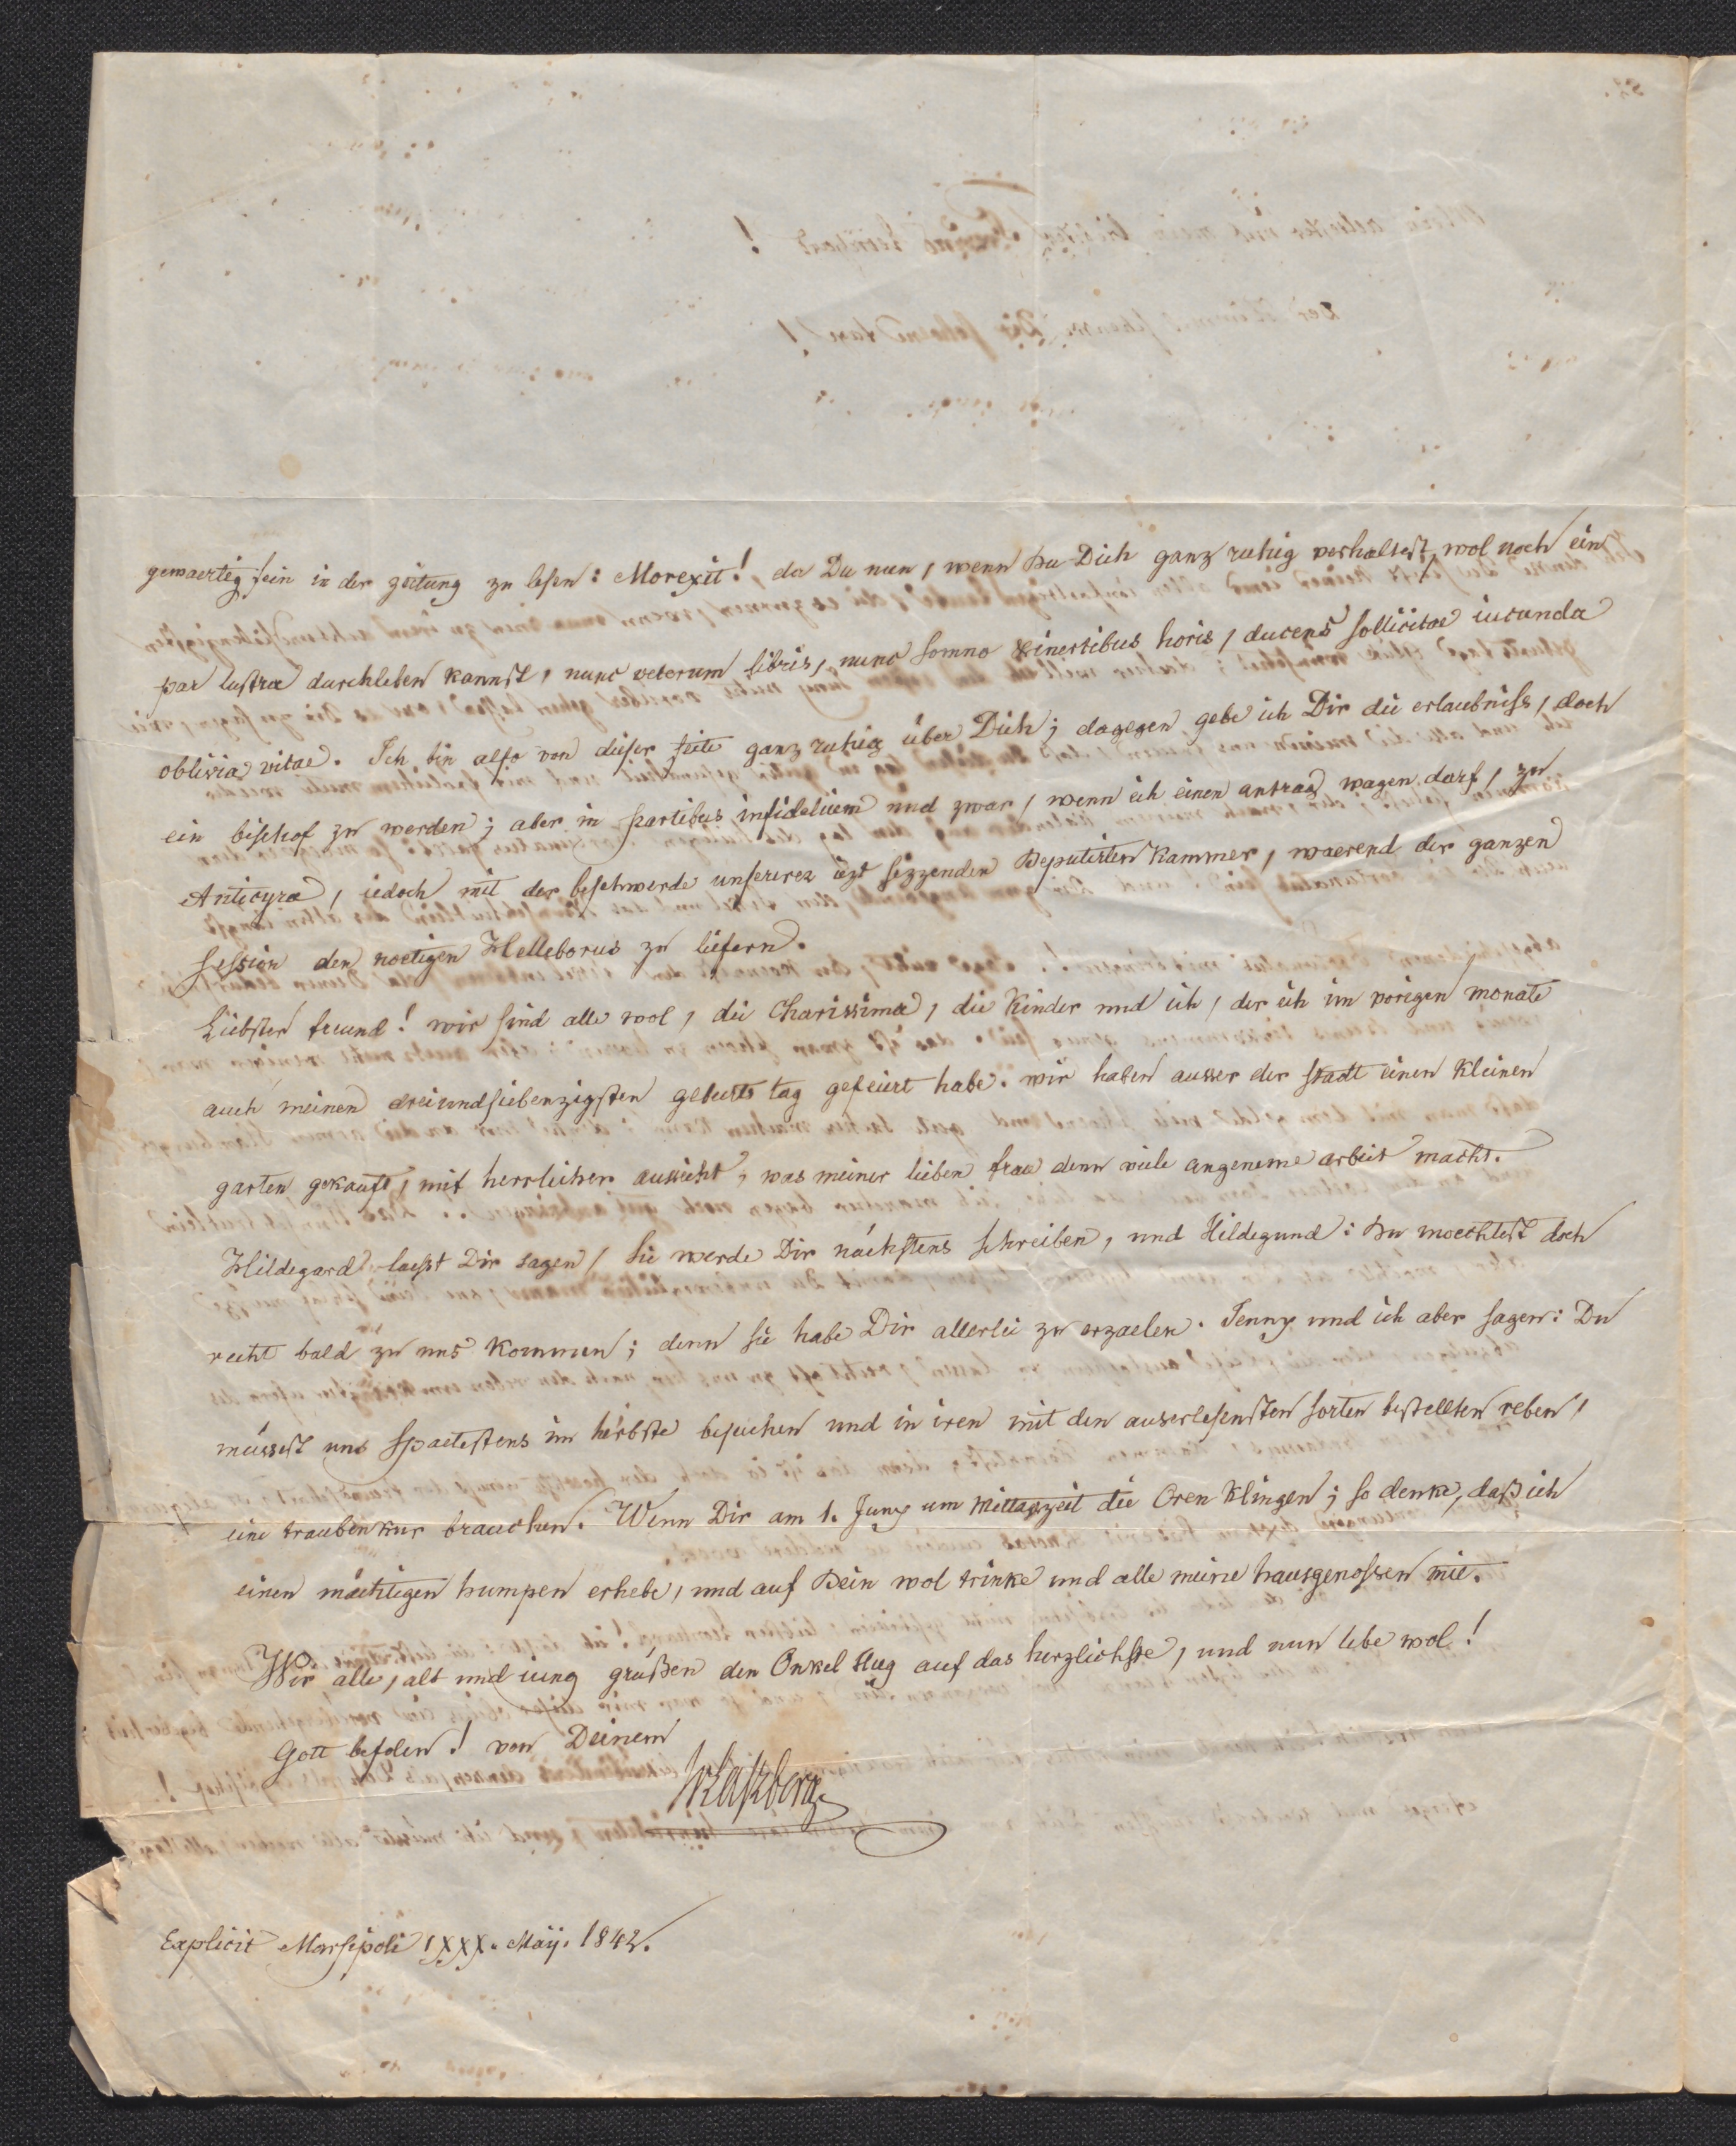 gewaertig sein in der zeitung zu lesen: Morexit! da Du nun, wenn Du Dich ganz ruhig verhaltest, wol noch ein
par lustra durchleben kannst, nunc veterum libris, nunc somno & inertibus horis, ducens sollicitae iucunda
oblivia vitae. Ich bin also von dieser seite ganz ruhig über Dich; dagegen gebe ich Dir die erlaubniss, doch
ein bischof zu werden; aber in partibus infidelium und zwar, wenn ich einen antrag wagen darf, zu
Anticyra, iedoch mit der beschwerde unsererer iezt sizzenden Deputirten Kammer, waerend der ganzen
session den noetigen Helleborus zu liefern.
Liebster freund! wir sind alle wol, die Charissima, die Kinder und ich, der ich im vorigen monate
auch meinen dreiundsiebenzigsten geburts tag gefeiert habe. wir haben ausser der stadt einen kleinen
garten gekauft, mit herrlicher aussicht, was meiner lieben frau denn viele angeneme arbeit macht.
Hildegard laesst Dir sagen, sie werde Dir nächstens schreiben, und Hildegund: Du moechtest doch
recht bald zu uns kommen; denn sie habe Dir allerlei zu erzaelen. Jenny und ich aber sagen: Du
müssest uns spaetestens im herbste besuchen und in iren mit den auserlesensten sorten bestellten reben,
eine traubenkur brauchen. Wenn Dir am 1. Juny um Mittagszeit die Oren klingen; so denke, daß ich
einen mächtigen humpen erhebe, und auf Dein wol trinke und alle meine hausgenossen mit.
Wir alle, alt und iung grüßen den Onkel Hug auf das herzlichste, und nun lebe wol!
Gott befolen! von Deinem
JvLaßberg
Explicit Morsipoli XXX. Maij. 1842.